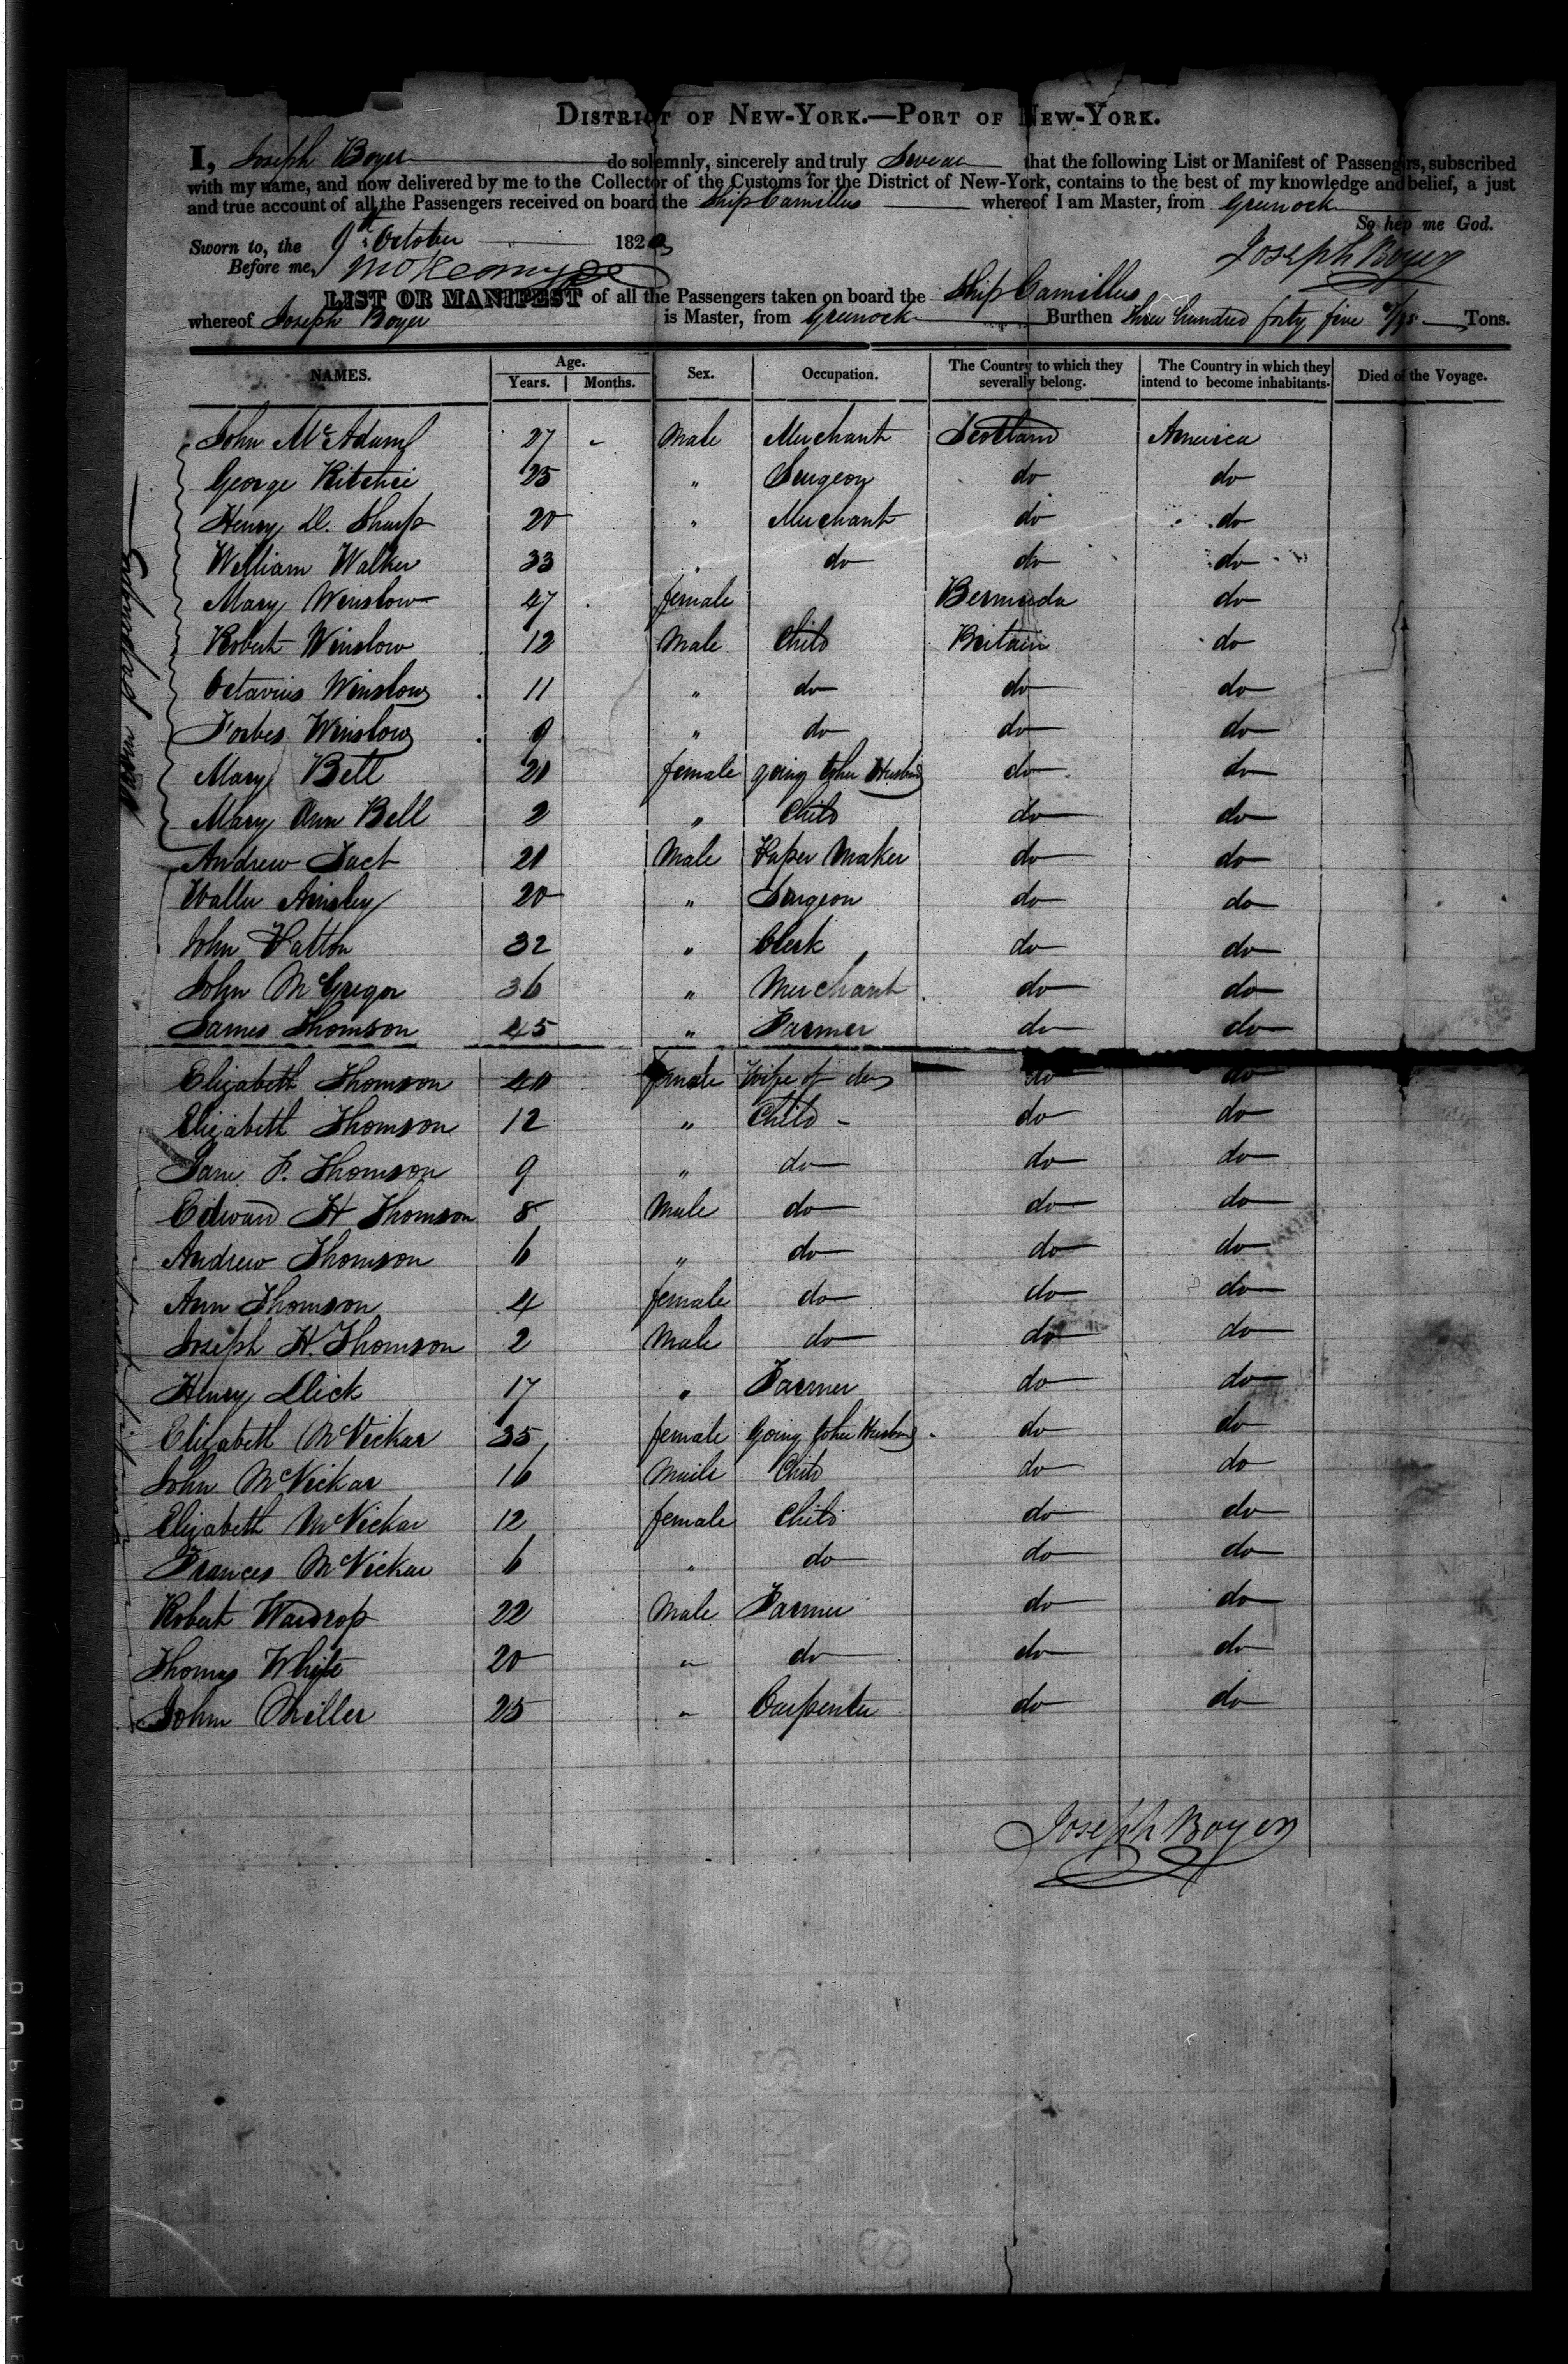 DISTRICT OF NEW-YORK.—PORT OF NEW-YORK.
I, Joseph Boyer do solemnly, sincerely and truly Swear that the following List or Manifest of Passengers, subscribed
with my name, and now delivered by me to the Collector of the Customs for the District of New-York, contains to the best of my knowledge and belief, a just
and true account of all the Passengers received on board the Ship Camillus whereof I am Master, from Greenock
So hep me God.
Sworn to, the 9th October 182
Before me, Joseph Boyer
LIST OR MANIFEST of all the Passengers taken on board the Ship Camillus
whereof Joseph Boyer is Master, from Greenock Burthen Three hundred forty five /95 Tons.
NAMES. Age. Years. Months. Sex. Occupation. The Country to which they severally belong. The Country in which they intend to become inhabitants. Died of the Voyage.
John McAdam 27 - Male Merchant Scotland America
George Ritchie 25 " Surgeon do do
Henry D. Sharp 20 " Merchant do do
William Walker 33 " do do do
Mary Winslow 47 female Bermuda do
Robert Winslow 12 Male Child Britain do
Octavius Winslow 11 " do do do
Forbes Winslow 9 " do do do
Mary Bell 21 female going to her Husband do do
Mary Ann Bell 2 " Child do do
Andrew Jact 21 Male Paper Maker do do
Walter Ainsley 20 " Surgeon do do
John Hatton 32 " Clerk do do
John McGregor 36 " Merchant do do
James Thomson 45 " Farmer do do
Elizabeth Thomson 40 female Wife of do do do
Elizabeth Thomson 12 " Child - do do
Jane F. Thomson 9 " do do do
Edward H Thomson 8 Male do do do
Andrew Thomson 6 " do do do
Ann Thomson 4 female do do do
Joseph H. Thomson 2 Male do do do
Henry Dick 17 " Farmer do do
Elizabeth McVickar 35 female Going to her Husband do do
John McVickar 16 Male Child do do
Elizabeth McVickar 12 female Child do do
Frances McVickar 6 " do do do
Robert Wardrop 22 Male Farmer do do
Thomas White 20 " do do do
John Miller 25 " Carpenter do do
Joseph Boyer